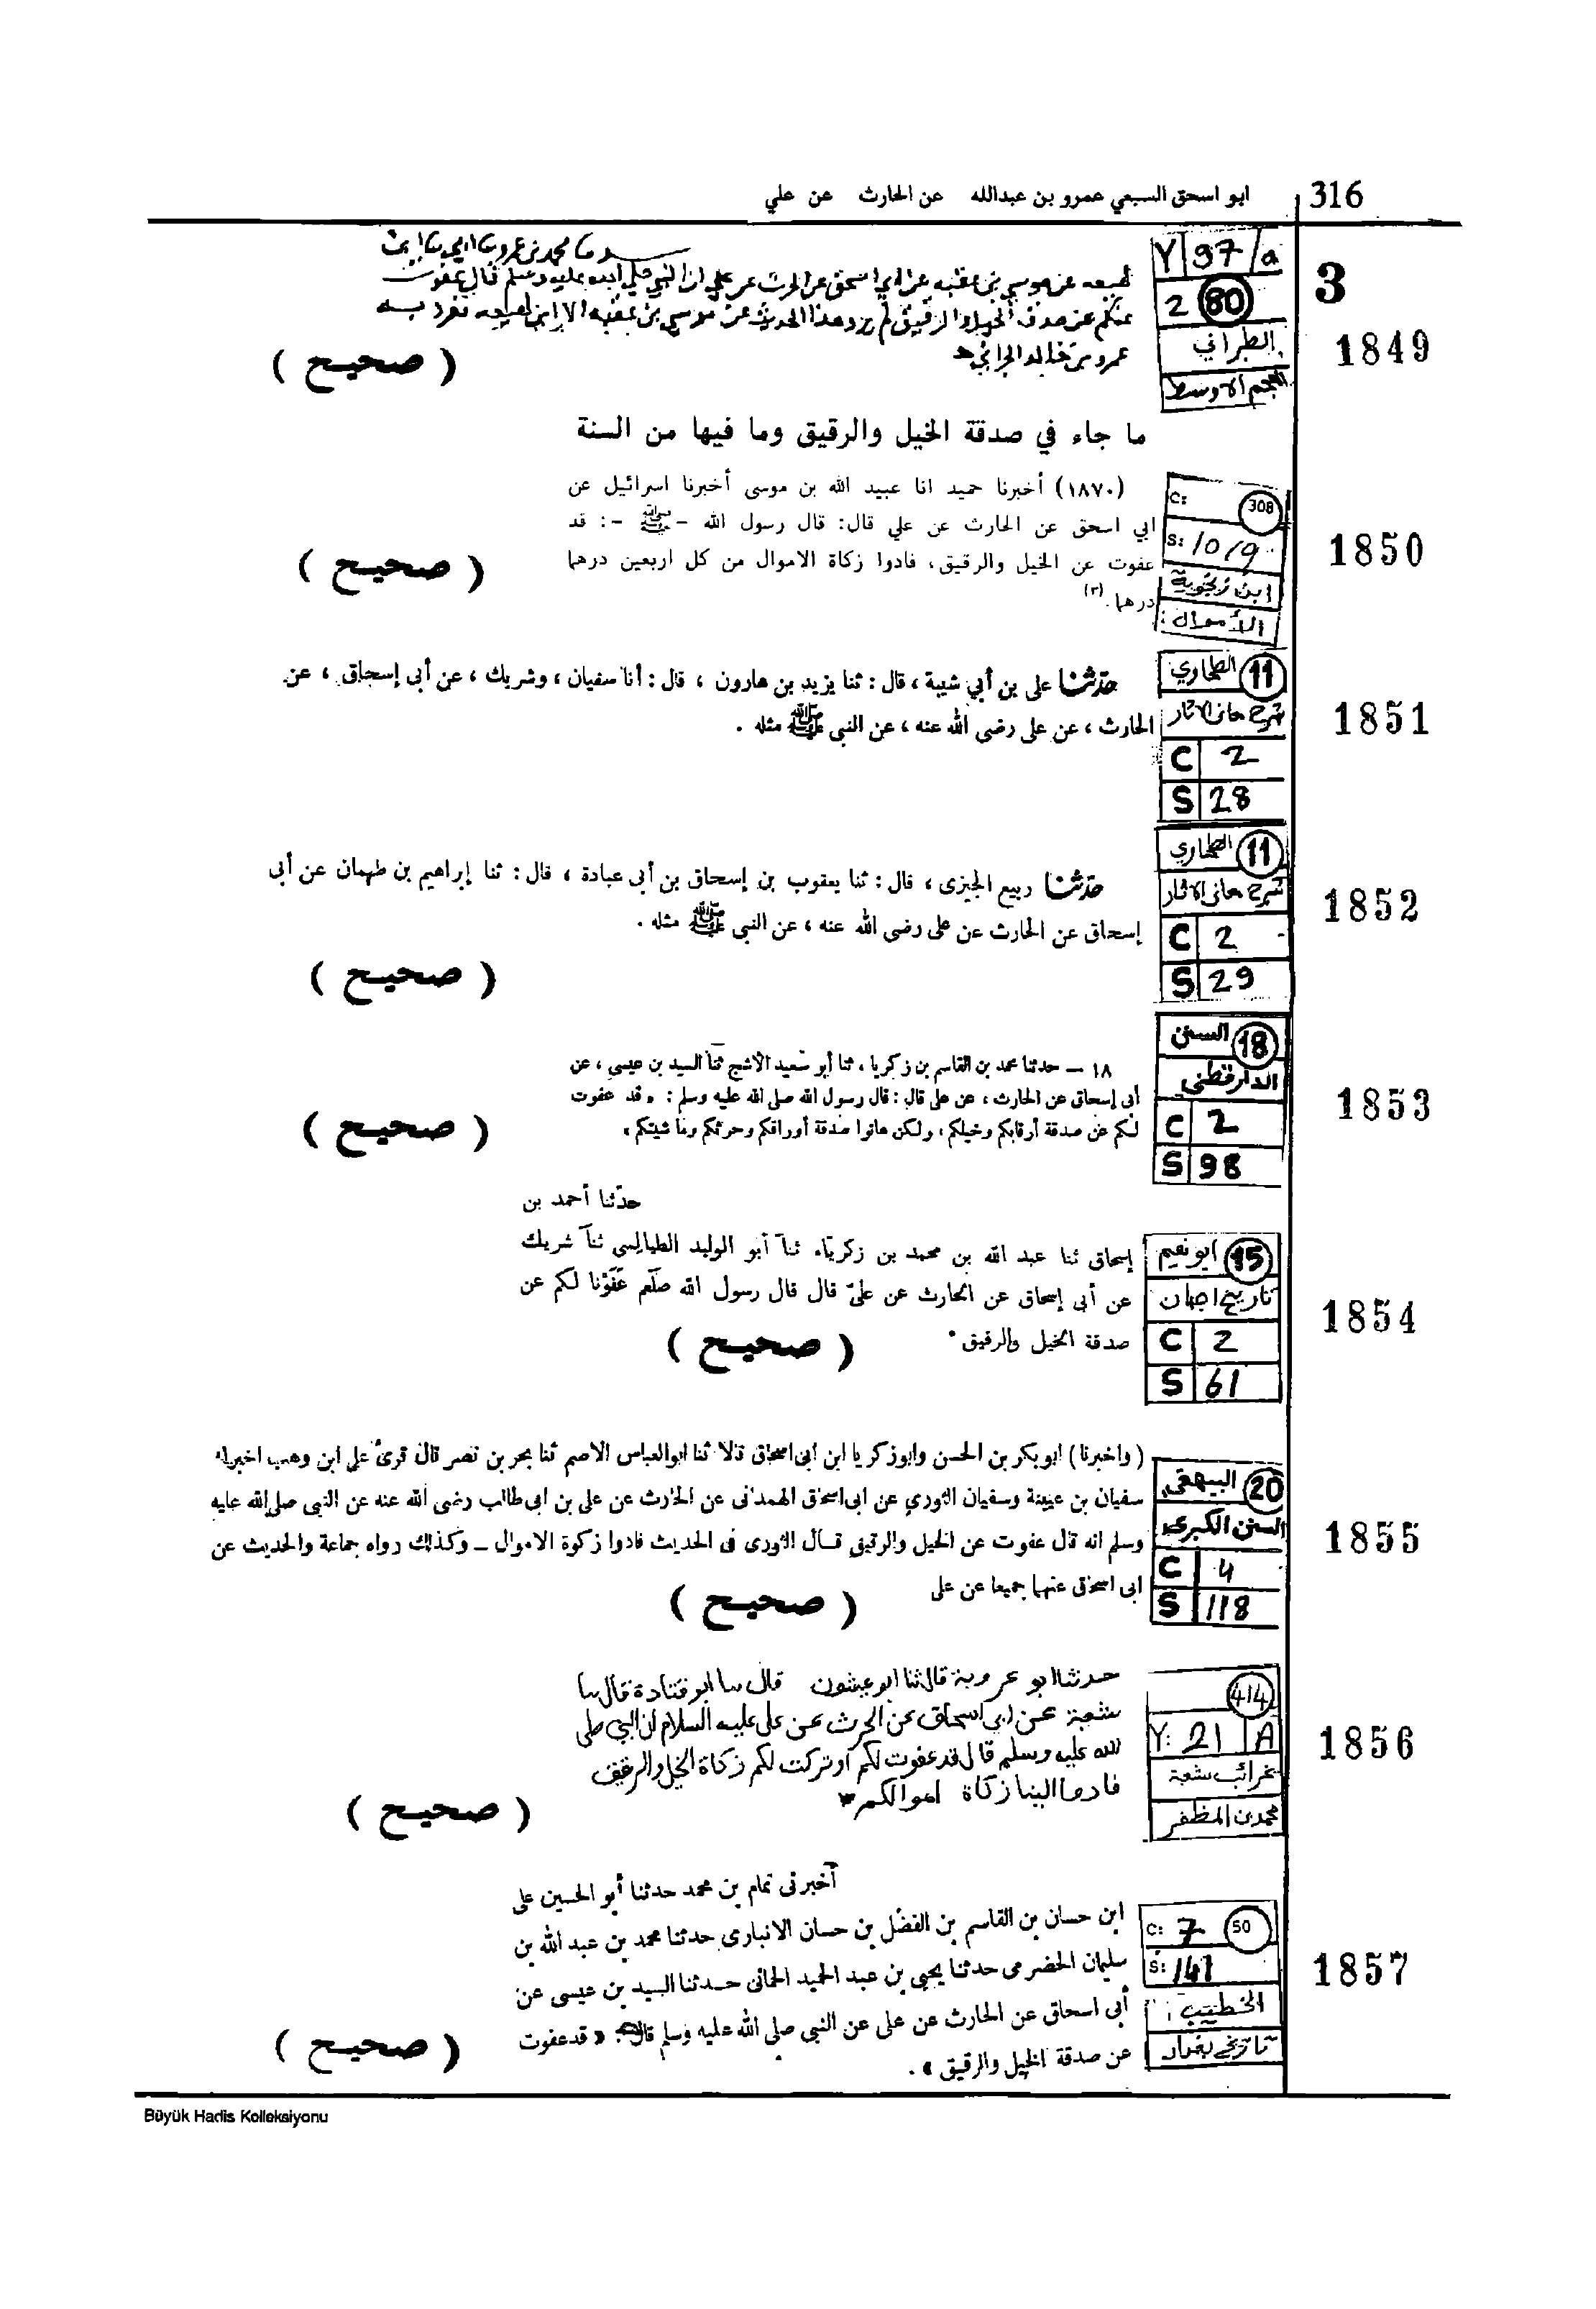 316 ابو اسحق السبعي عمرو بن عبدالله عن الحارث عن علي
3
1849
Y 97/a
2 80
الطبراني
المعجم الاوسط
حدثنا محمد بن عمرو بن خالد ثنا ابي ثنا ابن
لهيعه عن موسي بن عقبه عن ابي اسحق عن الحرث عن علي ان النبي صلي الله عليه وسلم قال عفوت
عنكم عن صدقة الخيل والرقيق لم يرو هذا الحديث عن موسي بن عقبه الا ابن لهيعه تفرد به
عمرو بن خالد الحراني
( صحيح )
ما جاء في صدقة الخيل والرقيق وما فيها من السنة
1850
C: 308
S: 1019
ابن زنجوية
الأموال:
(١٨٧٠) أخبرنا حميد انا عبيد الله بن موسى أخبرنا اسرائيل عن
ابي اسحق عن الحارث عن علي قال: قال رسول الله - ﷺ -: قد
عفوت عن الخيل والرقيق، فادوا زكاة الاموال من كل اربعين درهما
درهما.(٣)
( صحيح )
1851
الطحاوي 11
شرح معاني الاثار
C 2
S 28
حدثنا على بن أبي شيبة ، قال : ثنا يزيد بن هارون ، قال : أنا سفيان ، وشريك ، عن أبى إسحاق ، عن
الحارث ، عن على رضى الله عنه ، عن النبى ﷺ مثله .
1852
الطحاوي 11
شرح معاني الاثار
C 2
S 29
حدثنا ربيع الجيزى ، قال : ثنا يعقوب بن إسحاق بن أبى عبادة ، قال : ثنا إبراهيم بن طهمان عن أبى
إسحاق عن الحارث عن على رضى الله عنه ، عن النبى ﷺ مثله .
( صحيح )
1853
السنن 18
الدارقطني
C 2
S 98
١٨ – حدثنا محمد بن القاسم بن زكريا ، ثنا أبو سعيد الأشج ثنا السيد بن عيسى ، عن
أبى إسحاق عن الحارث ، عن على قال : قال رسول الله صلى الله عليه وسلم : « قد عفوت
لكم عن صدقة أرقابكم وخيلكم ، ولكن هاتوا صدقة أوراقكم وحرثكم وماشيتكم »
( صحيح )
1854
ابو نعيم 15
تاريخ اصبهان
C 2
S 61
حدّثنا أحمد بن
إسحاق ثنا عبد الله بن محمد بن زكرياء ثنا أبو الوليد الطيالسي ثنا شريك
عن أبى إسحاق عن الحارث عن علىّ قال قال رسول الله صلّعم عَفَوْنا لكم عن
صدقة الخيل والرقيق •
( صحيح )
1855
البيهقي 20
السنن الكبرى
C 4
S 118
( واخبرنا ) ابوبكر بن الحسن وابوزكريا ابن ابى اسحاق قالا ثنا ابوالعباس الاصم ثنا بحر بن نصر قال قرئ على ابن وهب اخبرك
سفيان بن عيينة وسفيان الثوري عن ابى اسحاق الهمدانى عن الحارث عن على بن ابى طالب رضى الله عنه عن النبى صلى الله عليه
وسلم انه قال عفوت عن الخيل والرقيق قــال الثورى فى الحديث فادوا زكوة الاموال – وكذلك رواه جماعة والحديث عن
ابى اسحاق عنهما جميعا عن على
( صحيح )
1856
414
Y: 21 A
غرائب شعبة
محمد بن المظفر
حدثنا ابو عروبة قال ثنا ابو عيشون قال سا ابو قتادة قال سا
شعبة عن ابي اسحاق عن الحرث عن علي عليه السلام ان النبي صلى
الله عليه وسلم قال قد عفوت لكم او تركت لكم زكاة الخيل والرقيق
فادوا الينا زكاة اموالكم
( صحيح )
1857
C: 7 50
S: 141
الخطيب :
تاريخ بغداد
أخبرنى تمام بن محمد حدثنا أبو الحسين على
ابن حسان بن القاسم بن الفضل بن حسان الانبارى حدثنا محمد بن عبد الله بن
سليمان الحضرمى حدثنا يحيى بن عبد الحميد الحمانى حــدثنا السيد بن عيسى عن
أبى اسحاق عن الحارث عن على عن النبى صلى الله عليه وسلم قال : « قد عفوت
عن صدقة الخيل والرقيق » .
( صحيح )
Büyük Hadis Kolleksiyonu